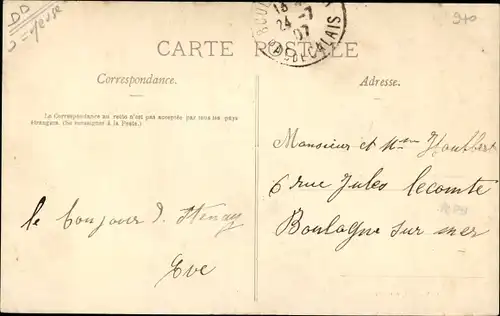 DD
Meuse
13
24 -7
07
PAS DE CALAIS
CARTE POSTALE
Correspondance.
Adresse.
La Correspondance au recto n'est pas acceptée par tous les pays
étrangers. (Se renseigner à la Poste.)
Monsieur et Mme
6 rue Jules lecomte
Boulogne sur mer
le bonjour d. Stenay
Eve